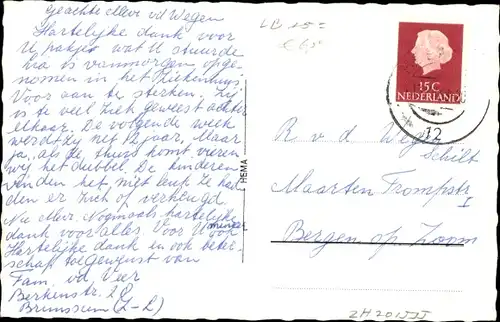 Geachte Mevr vd Wegen
Hartelijke dank voor
U pakje wat U stuurde
Ria is vanmorgen opge-
nomen in het Ziekenhuis
Voor aan te sterken. Zij
is te veel Ziek geweest achter
elkaar. De volgende week
werdt Zij net 12 jaar, Maar
ja, als Ze thuis komt vieren
wij het dubbel. De kinderen
vinden het niet leuk Ze had
den er Zich op verheugd.
Nu Mevr. Nogmaals hartelijke
dank voor alles. Voor U meneer ook
Hartelijke dank in ook beter-
schap toegewenst van
Fam. vd Veer
Berkenstr. 28
Brunssum (Z-L)
REMA
15 C
NEDERLAND
12
R v d Weg
Schilt
Maarten Trompstr
I
Bergen op Zoom